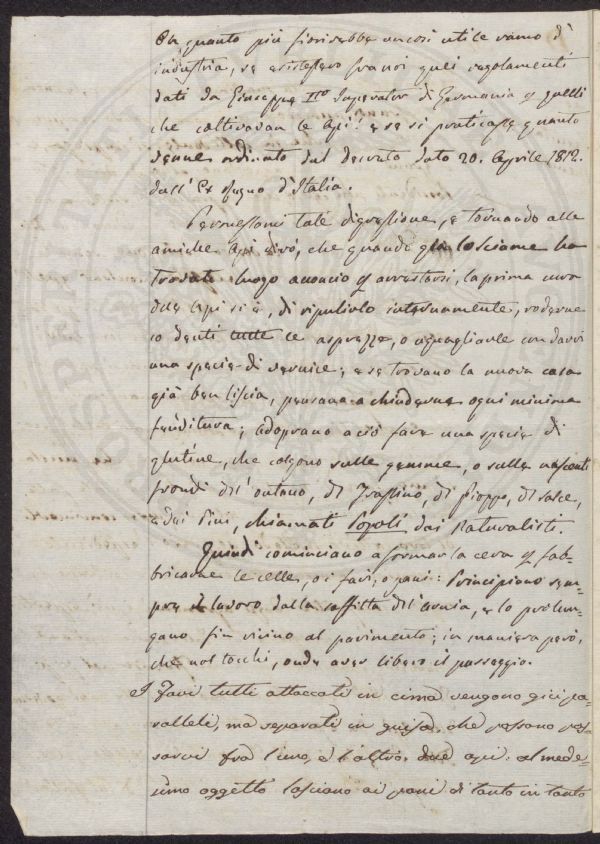 Oh quanto più fiorirebbe un così utile ramo d'
industria, se esistessero fra noi quei regolamenti
dati da Giuseppe IIº Imperator di Germania p quelli
che coltivavan le Api! e se si praticasse quanto
venne ordinato dal decreto dato 20. Aprile 1812.
dall' Ex Regno d'Italia.
Permessami tale digressione, e tornando alle
amiche Api dirò, che quando gli lo sciame ha
trovato luogo acconcio p arrestarsi, la prima cura
delle Api si è, di ripulirlo internamente, roderne
co denti tutte le asprezze, o uguagliarle con darvi
una specie di vernice; e se trovano la nuova casa
già ben liscia, pensano a chiuderne ogni minima
fenditura; adoprano a ciò fare una specie di
glutine, che colgono sulle gemme, o sulle nascenti
frondi dell' ontano, di Frassino, di Pioppo, di salce,
e dei Pini, chiamati Popoli dai Naturalisti.
Quindi cominciano a formar la cera p fab-
bricarne le celle, o i favi, o pani: Principiano sem-
pre il lavoro dalla soffitta dell' arnia, e lo prolun-
gano fin vicino al pavimento; in maniera però,
che nol tocchi, onde aver libero il passeggio.
I Favi tutti attaccati in cima vengono giù pa-
ralleli, ma separati in guisa, che possano pas-
sarvi fra l'uno, e l'altro due api: al mede-
simo oggetto lasciano ai pani di tanto in tanto